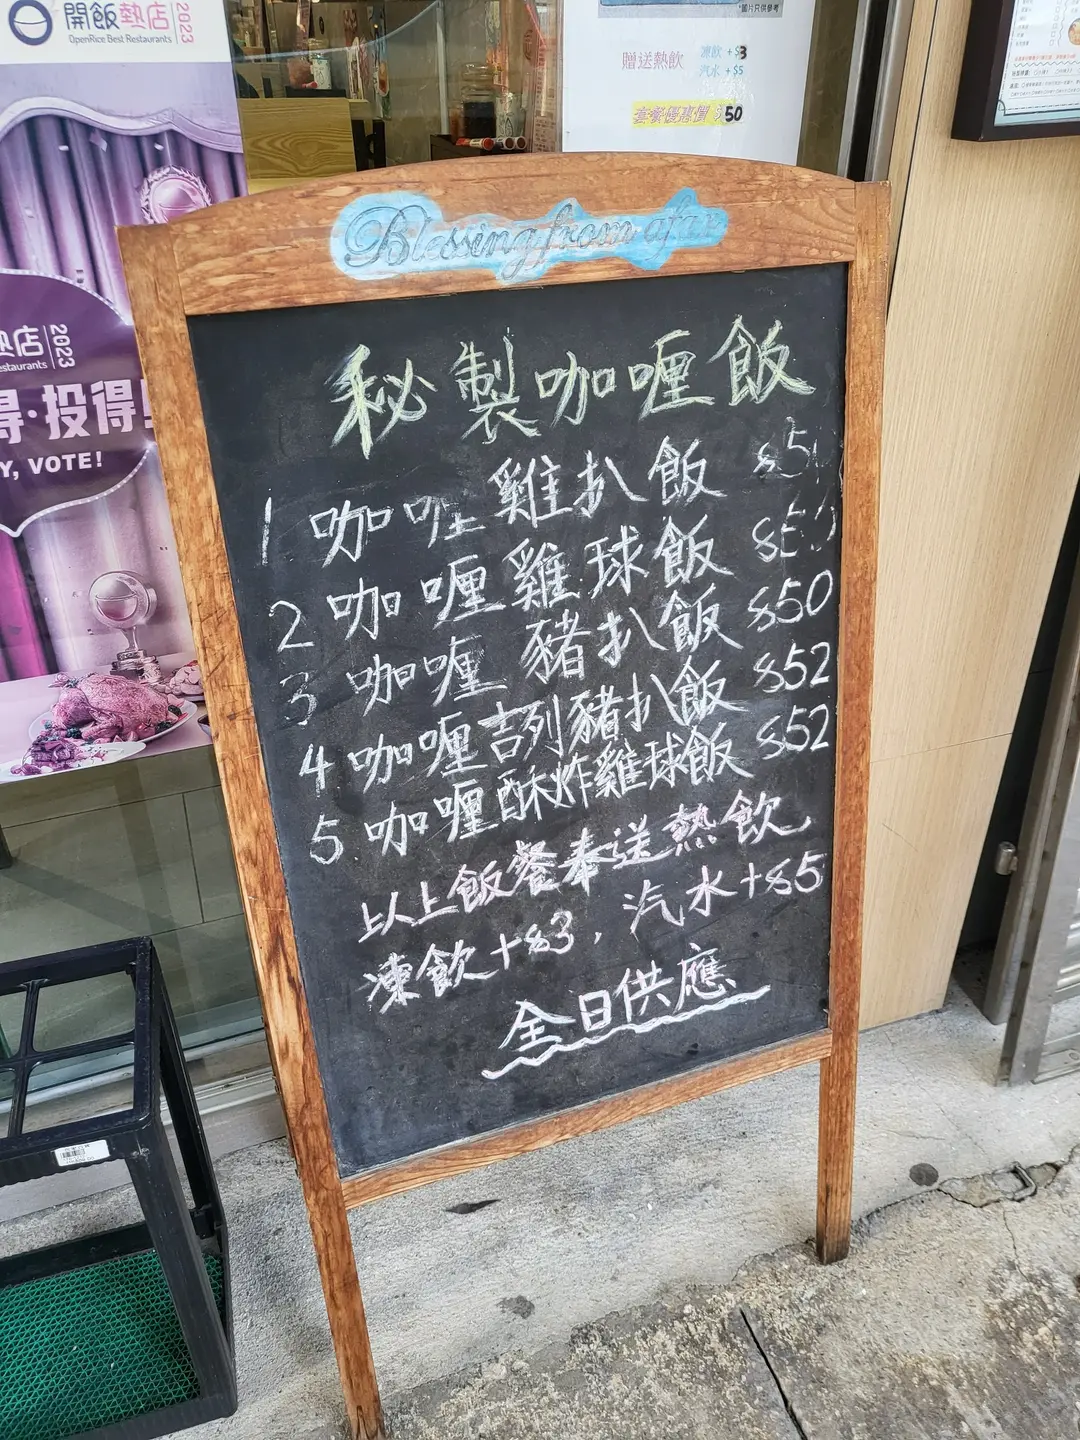 開飯熱店 2023
OpenRice Best Restaurants
*圖片只供參考
贈送熱飲 凍飲 +$3
汽水 +$5
套餐優惠價 $50
Blessing from afar
熱店 2023
Restaurants
得·投得!
Y, VOTE!
秘製咖喱飯
1 咖喱雞扒飯
2 咖喱雞球飯 $50
3 咖喱豬扒飯 $50
4 咖喱吉列豬扒飯 $52
5 咖喱酥炸雞球飯 $52
以上飯餐奉送熱飲
凍飲+$3，汽水+$5
全日供應